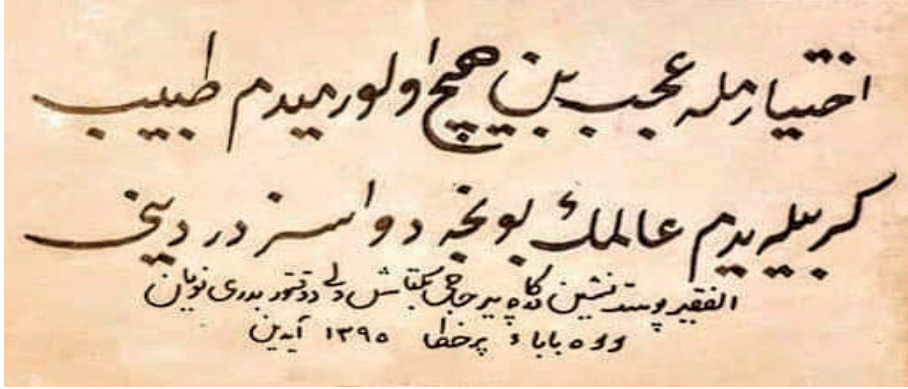 اختیارمله عجب بن هیچ اولورمیدم طبیب
كر بیله یدم عالمك بونجه دواسز دردینی
الفقیر پوست نشین دركاه پیر حاجی بكتاش ولی دوقتور بدری نویان
دده باباء پرخطا ١٣٩٥ آیدین